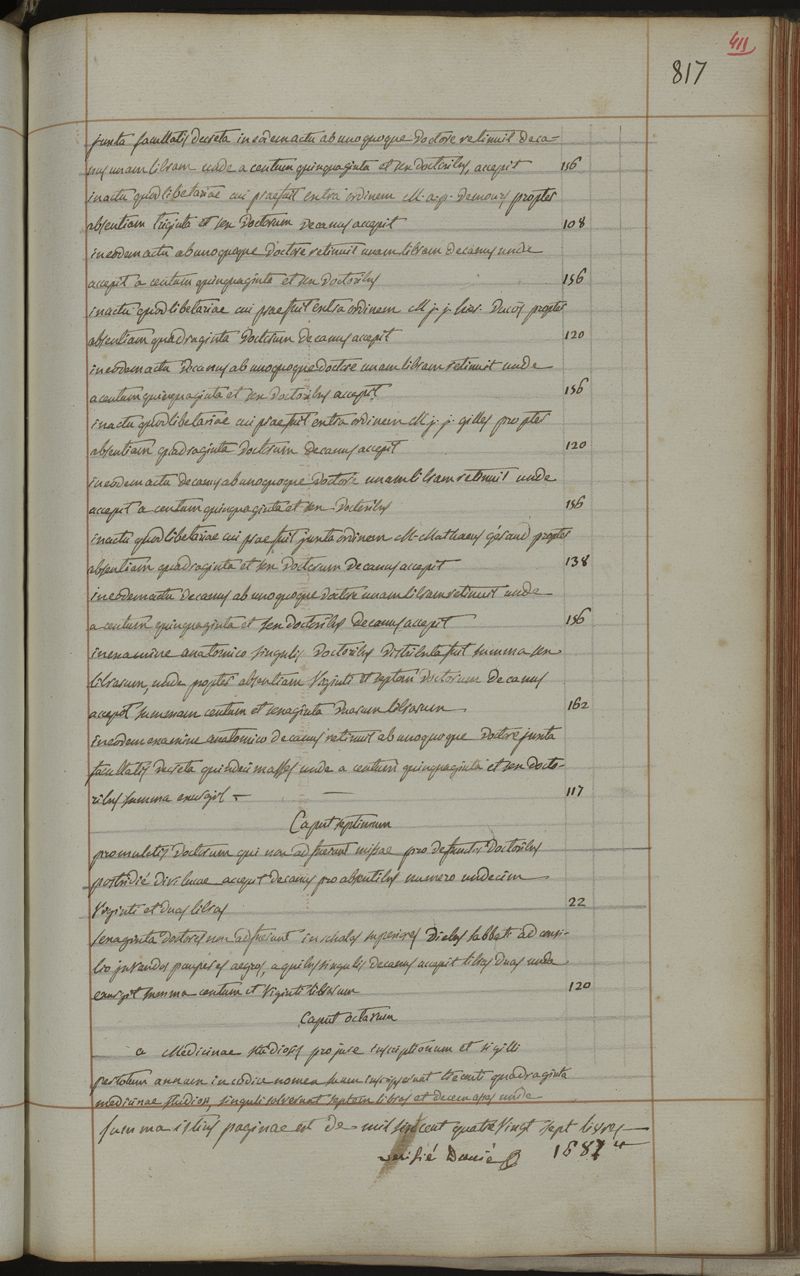 411
817
juxta facultatis decreta in eodem actu ab unoquoque doctore retinuit deca-
nus unam libram unde a centum quinquaginta et sex doctoribus, accepit 156
in actu quodlibetariae cui praefuit extra ordinem M. a. p. demours propter
absentiam triginta et sex doctorum decanus accepit 108
in eodem actu ab unoquoque doctore retinuit unam libram decanus unde
accepit a centum quinquaginta et sex doctoribus 156
in actu quodlibetariae cui praefuit extra ordinem M j. j. propter
absentiam quadraginta doctorum decanus accepit 120
in eodem actu decanus ab unoquoque doctore unam libram retinuit unde
a centum quinquaginta et sex doctoribus accepit 156
in actu quodlibetariae cui praefuit extra ordinem M j. j. gilles propter
absentiam quadraginta doctorum decanus accepit 120
in eodem actu decanus ab unoquoque doctore unam libram retinuit unde
accepit a centum quinquaginta et sex doctoribus 156
in actu quodlibetariae cui praefuit juxta ordinem M. Mathaeus géraud propter
absentiam quadraginta et sex doctorum decanus accepit 138
in eodem actu decanus ab unoquoque doctore unam libram retinuit unde
a centum quinquaginta et sex doctoribus decanus accepit 156
in examine anatomico singulis doctoribus distributa fuit summa sex
librarum, unde propter absentiam viginti et septem doctorum decanus
accepit summam centum et sexaginta duarum librarum 162
in eodem examine anatomico decanus retinuit ab unoquoque doctore juxta
facultatis decreta quindecim asses unde a centum quinquaginta et sex docto-
ribus summa exurgit 117
Caput septimum
pro mulctis doctorum qui non adfuerunt missae pro defunctis doctoribus
postridié divi lucae accepit decanus pro absentibus numero undecim
viginti et duas libras 22
sexaginta doctores non adfuerunt in scholas superiores diebus sabbati ad consi-
lio juvandos pauperes aegros, a quibus singulis decanus accepit libras duas unde
exurgit summa centum et viginti librarum 120
Caput octavum
a Medicinae studiosis pro jure inscriptionum et sigilli
per totum annum in codice nomen suum inscripserunt trecenti quadraginta
medicinae studiosi, singuli solverunt septem libras et decem asses unde
summa istius paginae est de mil six cent quatre vingt sept livres
verifié Dovié 1687 ₶